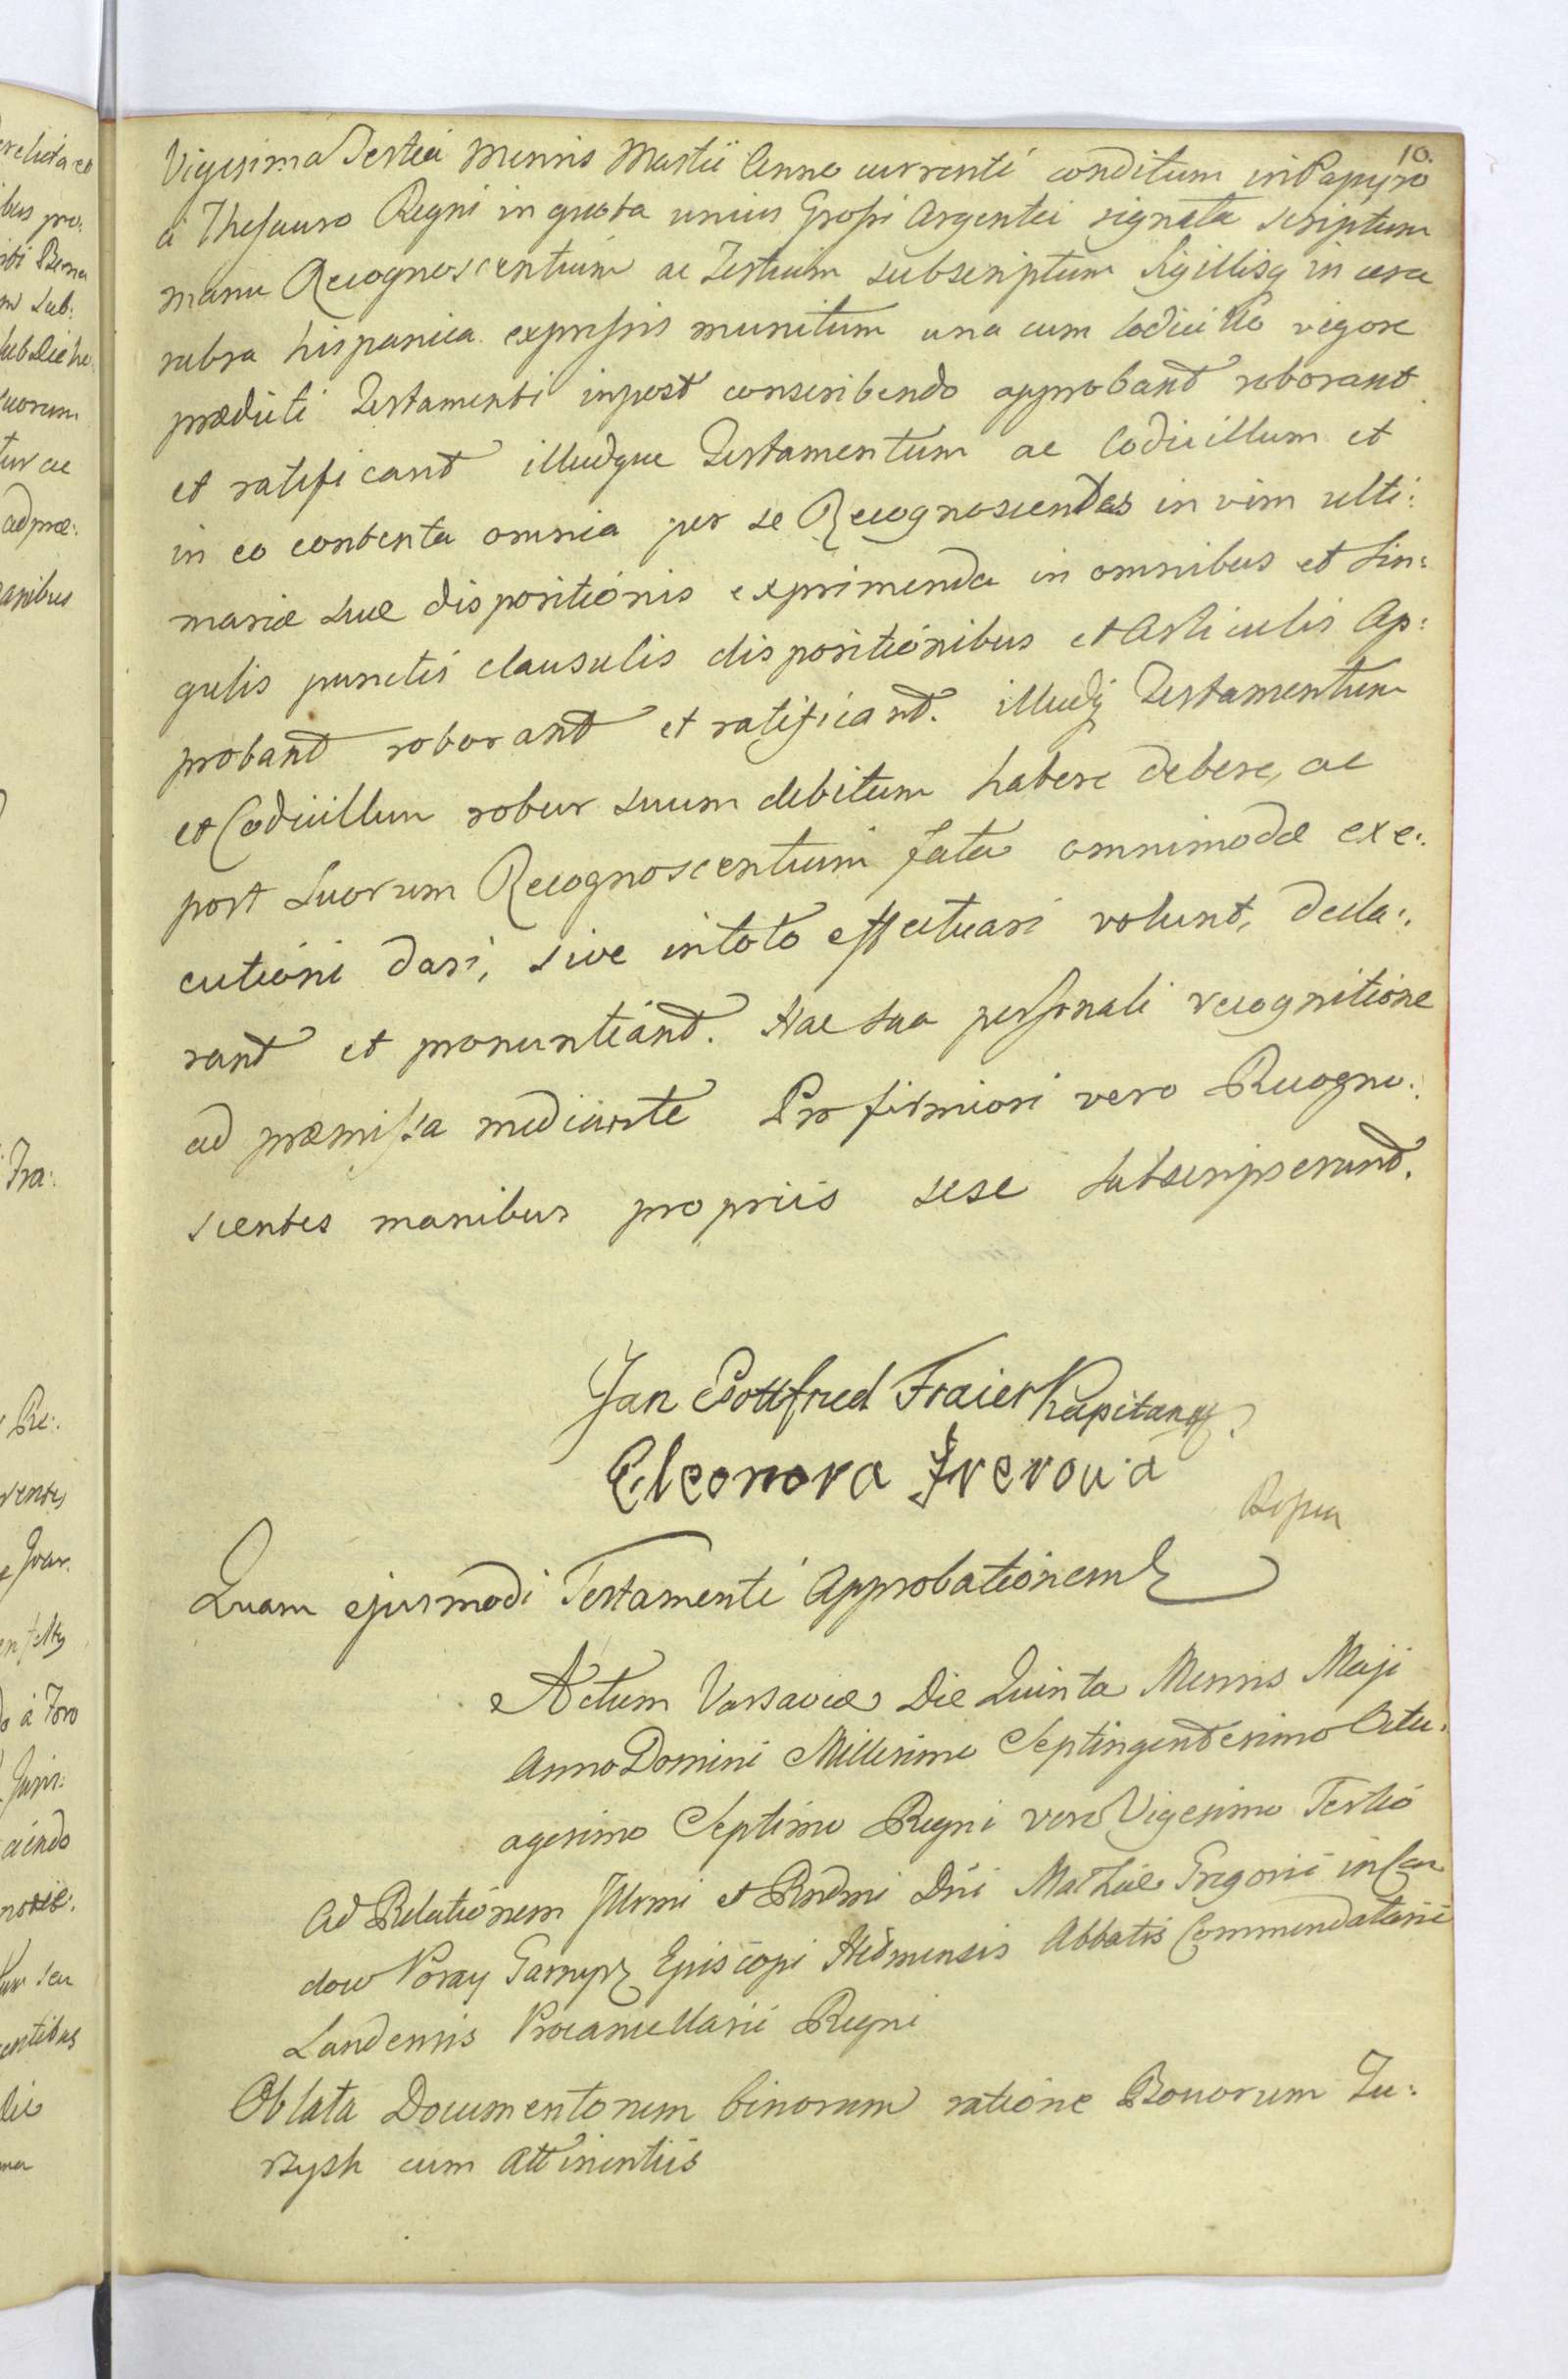 10.
Vigesima Tertia Mensis Martii Anno currenti conditum in Papyro
a Thesauro Regni in quota unius Grossi Argentei signata scriptum
manu Recognoscentium ac Testium subscriptum Sigillisq in cera
rubra hispanica expressis munitum una cum Codicillo vigore
prædicti Testamenti inpost conscribendo approbant roborant
et ratificant illudque Testamentum ac Codicillum et
in eo contenta omnia per se Recognoscentes in vim ulti:
mariæ suæ dispositionis exprimenda in omnibus et Sin:
gulis punctis clausulis dispositionibus et Articulis Ap:
probant roborant et ratificant. illudq Testamentum
et Codicillum robur suum debitum habere debere, ac
post Suorum Recognoscentium fata omnimodæ exe:
cutioni dari, sive in toto effectuari volunt, decla:
rant et pronuntiant. Hac sua personali recognitione
ad præmissa mediante Pro firmiori vero Recogno:
scentes manibus propriis sese subscripserunt.
Jan Gottfried Fraier Kapitan
Eleonora Frerowa
Quam ejusmodi Testamenti Approbationem
Actum Varsaviæ Die Quinta Mensis Maji
Anno Domini Millesimo Septingentesimo Octu:
agesimo Septimo Regni vero Vigesimo Tertio
Ad Relationem Illrmi et Rndmi Dni Mathiæ Grigorii in Gar
dow Poray Garnysz Episcopi Chelmensis Abbatis Commendatarii
Landensis Procancellarii Regni
Oblata Documentorum binorum ratione Bonorum Tu:
rzysk cum Attinentiis